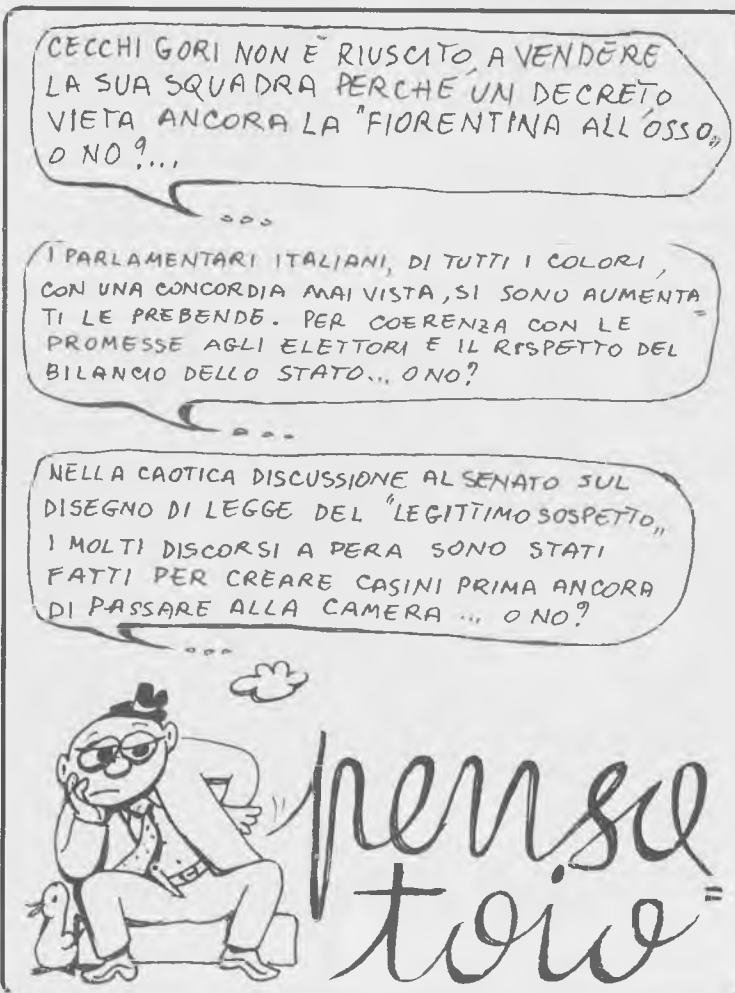 CECCHI GORI NON È RIUSCITO A VENDERE
LA SUA SQUADRA PERCHÉ UN DECRETO
VIETA ANCORA LA "FIORENTINA ALL'OSSO„
O NO?...
...
I PARLAMENTARI ITALIANI, DI TUTTI I COLORI,
CON UNA CONCORDIA MAI VISTA, SI SONO AUMENTA=
TI LE PREBENDE. PER COERENZA CON LE
PROMESSE AGLI ELETTORI E IL RISPETTO DEL
BILANCIO DELLO STATO... O NO?
...
NELLA CAOTICA DISCUSSIONE AL SENATO SUL
DISEGNO DI LEGGE DEL "LEGITTIMO SOSPETTO„
I MOLTI DISCORSI A PERA SONO STATI
FATTI PER CREARE CASINI PRIMA ANCORA
DI PASSARE ALLA CAMERA ... O NO?
...
pensa
toio"